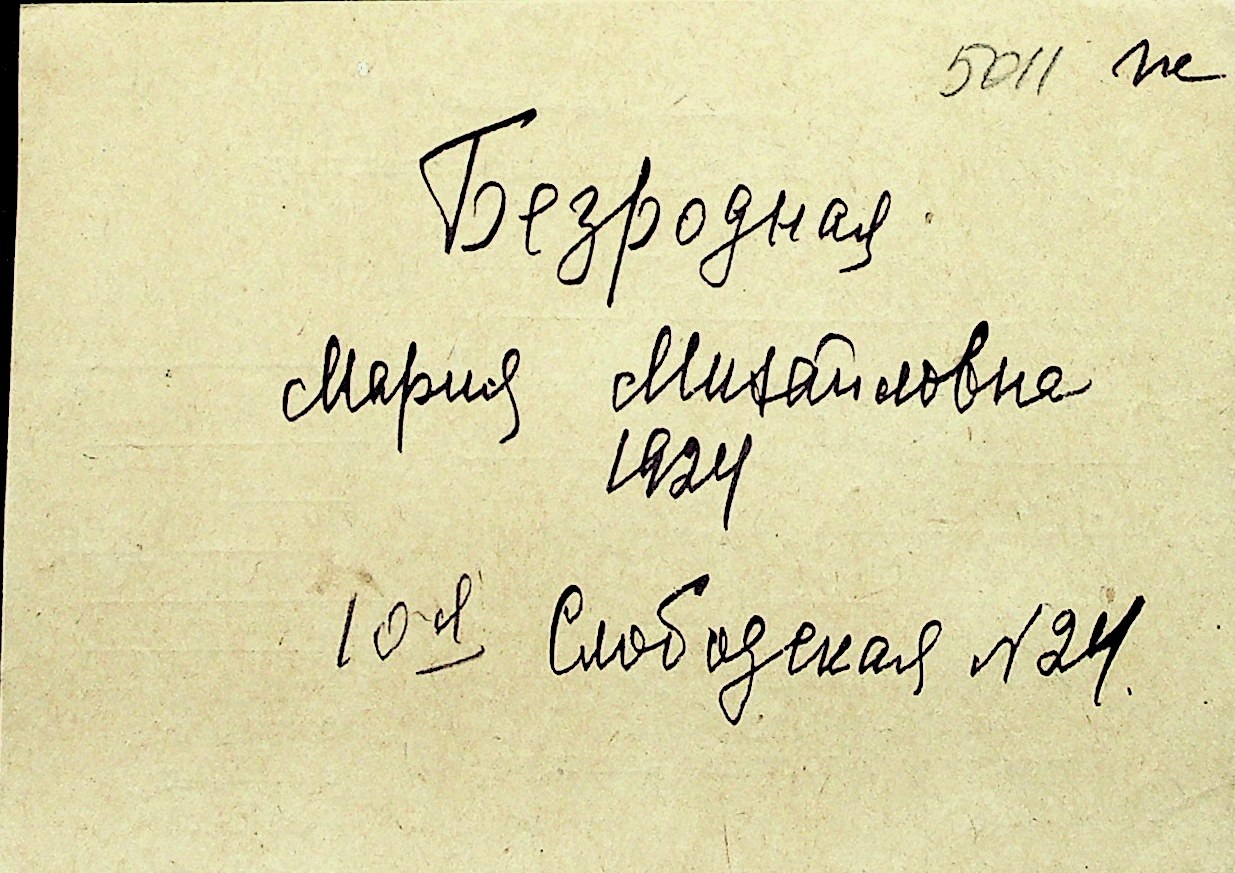 5011
Безродная
Мария Михайловна
1924
10-я Слободская N24.